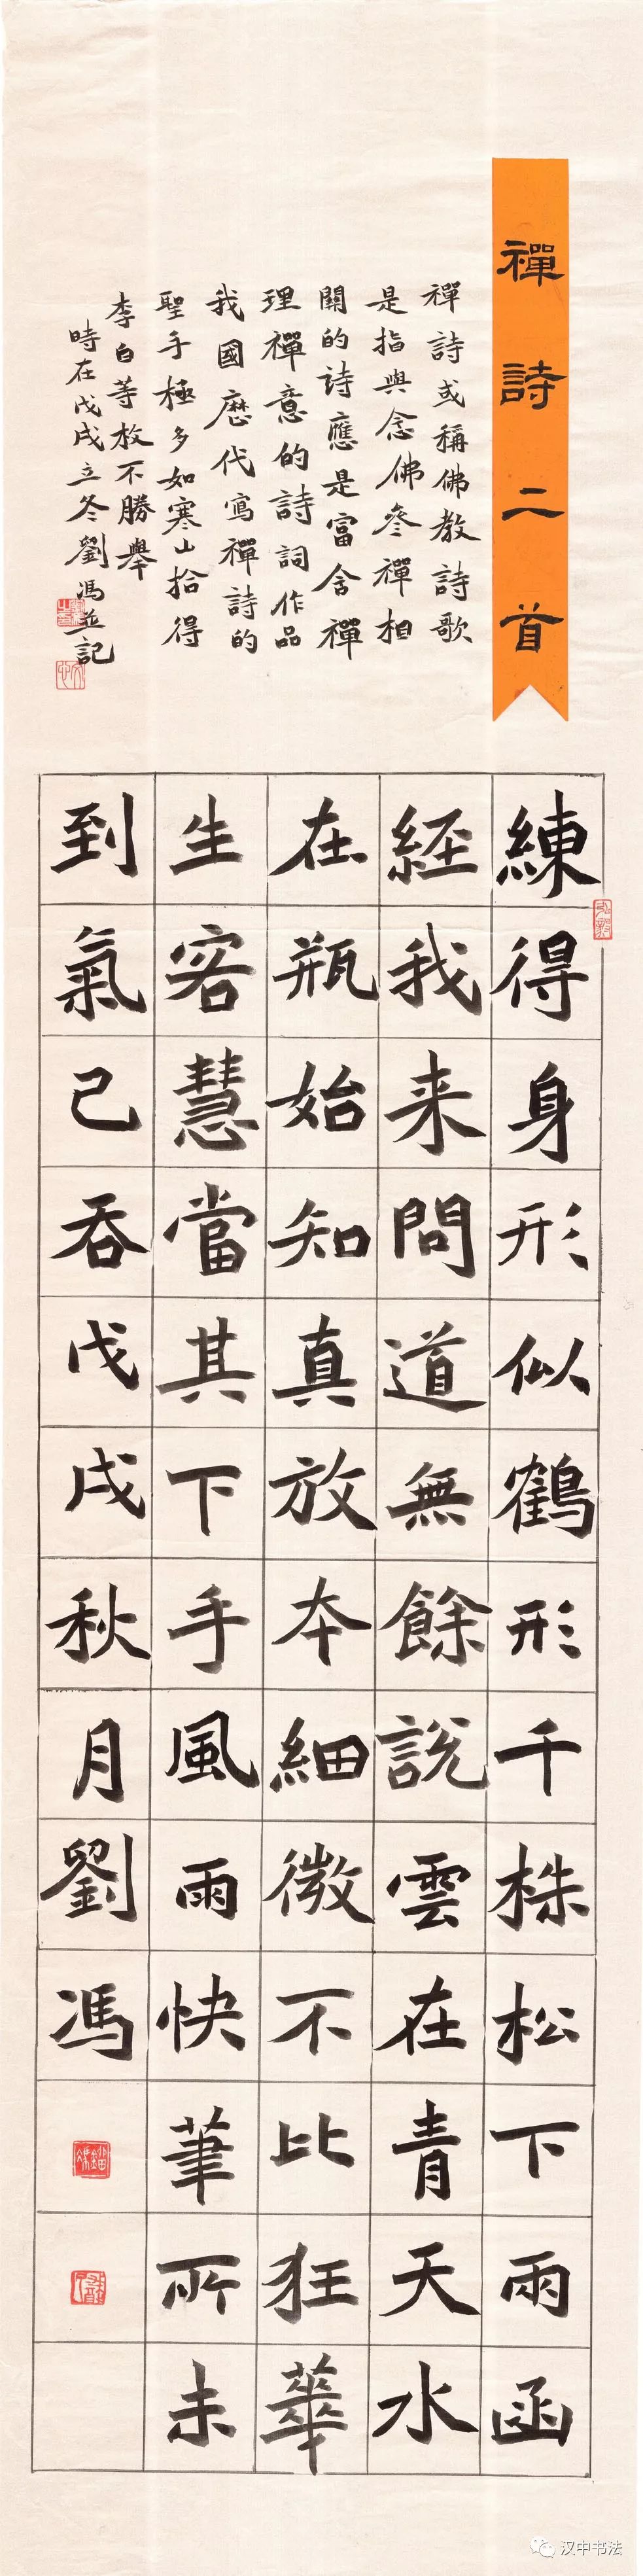 禪詩二首
禪詩或稱佛教詩歌
是指與念佛參禪相
關的詩應是富含禪
理禪意的詩詞作品
我國歷代寫禪詩的
聖手極多如寒山拾得
李白等枚不勝舉
時在戊戌立冬劉馮並記
練得身形似鶴形千株松下雨函
經我来問道無餘說雲在青天水
在瓶始知真放本細微不比狂華
生客慧當其下手風雨快筆所未
到氣已吞戊戌秋月劉馮
汉中书法